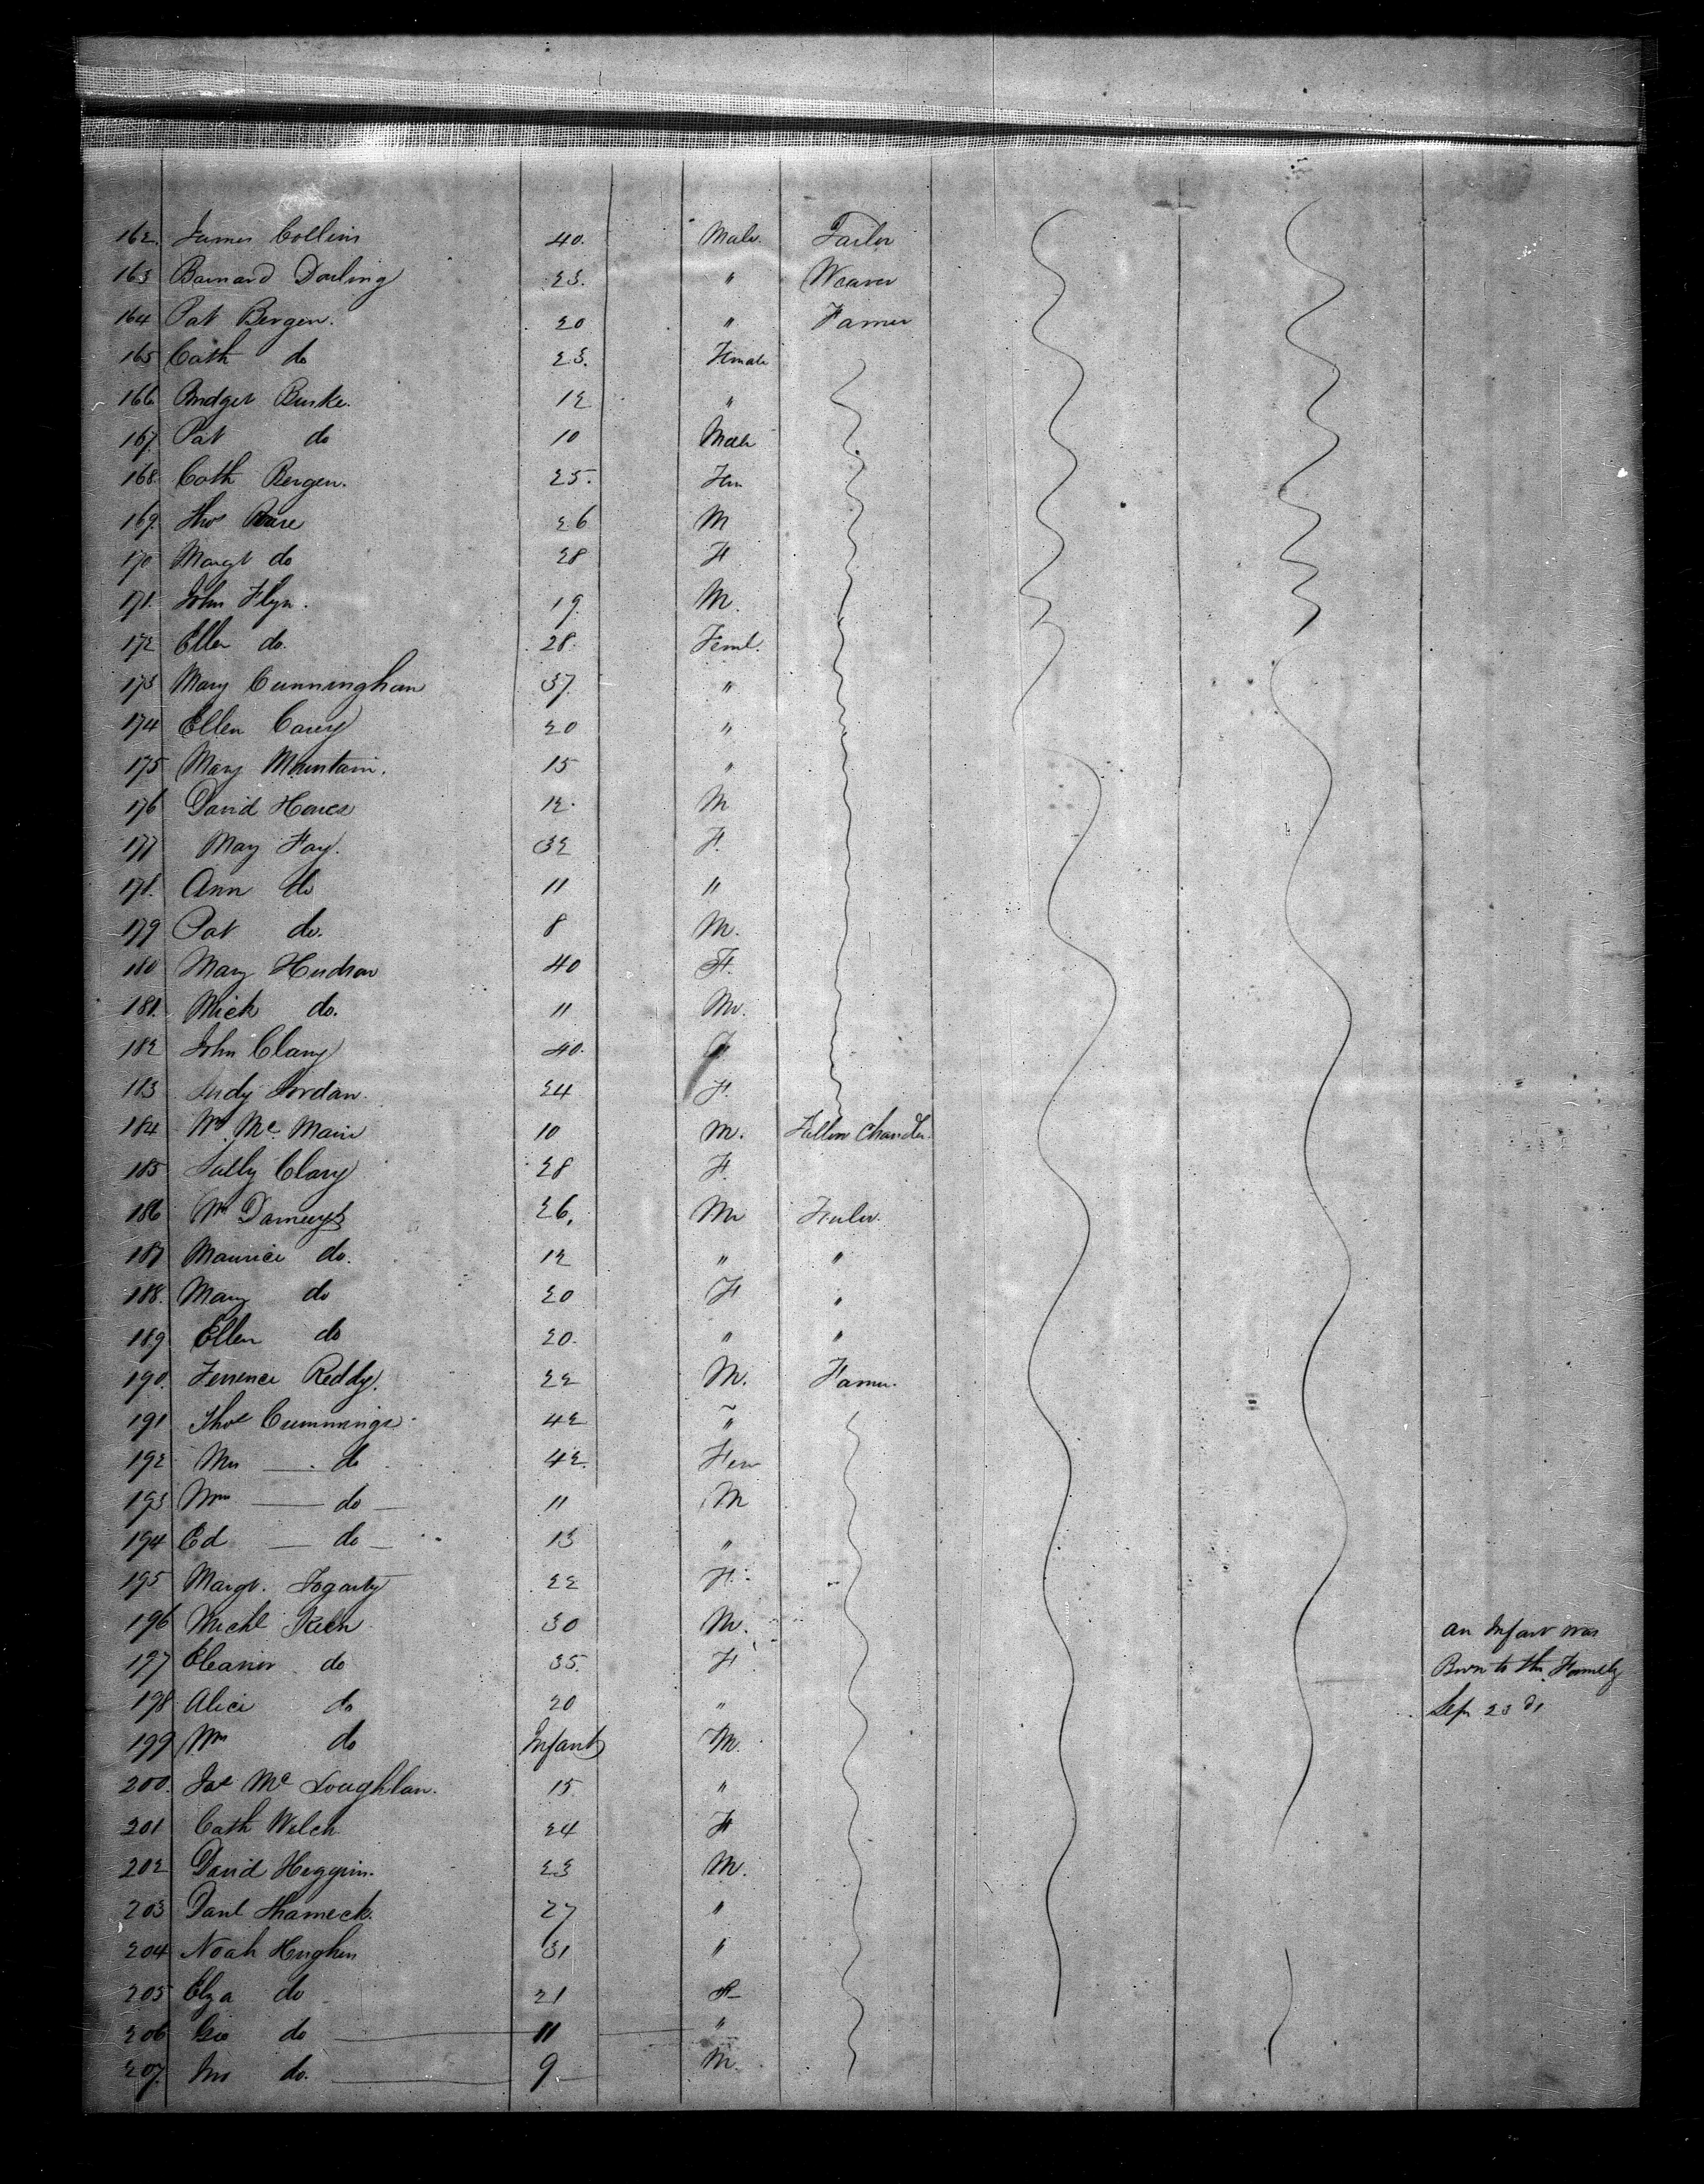 162. James Collins 40. Male. Tailor
163 Barnard Darling 23. " Weaver
164 Pat Bergen. 20 " Farmer
165 Cath do 23. Female
166 Bridget Burke. 12 "
167. Pat do 10 Male
168. Cath Bergen. 25. Fem
169. Thos 26 M
170 Margt do 28 F
171. John Flyn. 19. M.
172 Ellen do. 28. Feml.
173 Mary Cunningham 37. "
174 Ellen Carey 20 "
175 Mary Mountain. 15 "
176 David 12. M
177 Mary Fay. 32 F.
178. Ann do 11 "
179 Pat do. 8 M.
180 Mary Hudson 40 F.
181. Mick do. 11 M.
182 John Clary 40.
183 Judy Jordan. 24 F.
184 Wm Mc Main 10 M. Tallow Chandler.
185 Sally Clary 28 F.
186 Wm 26. M
187 Maurice do. 12 " "
188. Mary do 20 F "
189. Ellen do 20. " "
190. Terrence Reddy. 22 M. Farmer.
191 Thos Cummings 42 "
192 Mrs —. do 42. Fem
193 Wm — do — 11 M
194 Ed — do — 13 "
195 Margt. Fogarty 22 F.
196 Michl 30 M. an Infant was
197 Eleanor do 35. F Born to this Family
198 Alice do 20 " Sep 23 d
199 Wm do Infant M.
200. Jas Mc Loughlan. 15. "
201 Cath Welch 24 F
202 David Heggin. 23 M.
203 27 "
204 Noah Hughes 31 "
205 Elza do 21 F
206 Geo do — 11 "
207. Jno do. — 9 — M.